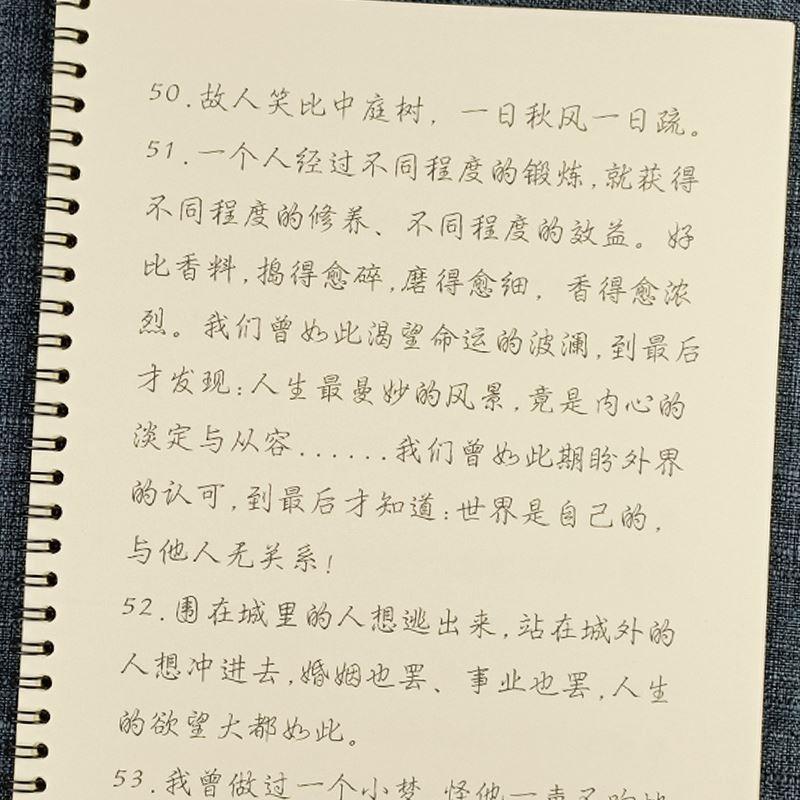 50.故人笑比中庭树，一日秋风一日疏。
51.一个人经过不同程度的锻炼,就获得
不同程度的修养、不同程度的效益。好
比香料,捣得愈碎,磨得愈细，香得愈浓
烈。我们曾如此渴望命运的波澜,到最后
才发现:人生最曼妙的风景,竟是内心的
淡定与从容......我们曾如此期盼外界
的认可,到最后才知道:世界是自己的,
与他人无关系!
52.围在城里的人想逃出来,站在城外的
人想冲进去,婚姻也罢、事业也罢,人生
的欲望大都如此。
53.我曾做过一个小梦 怪他一声不响地